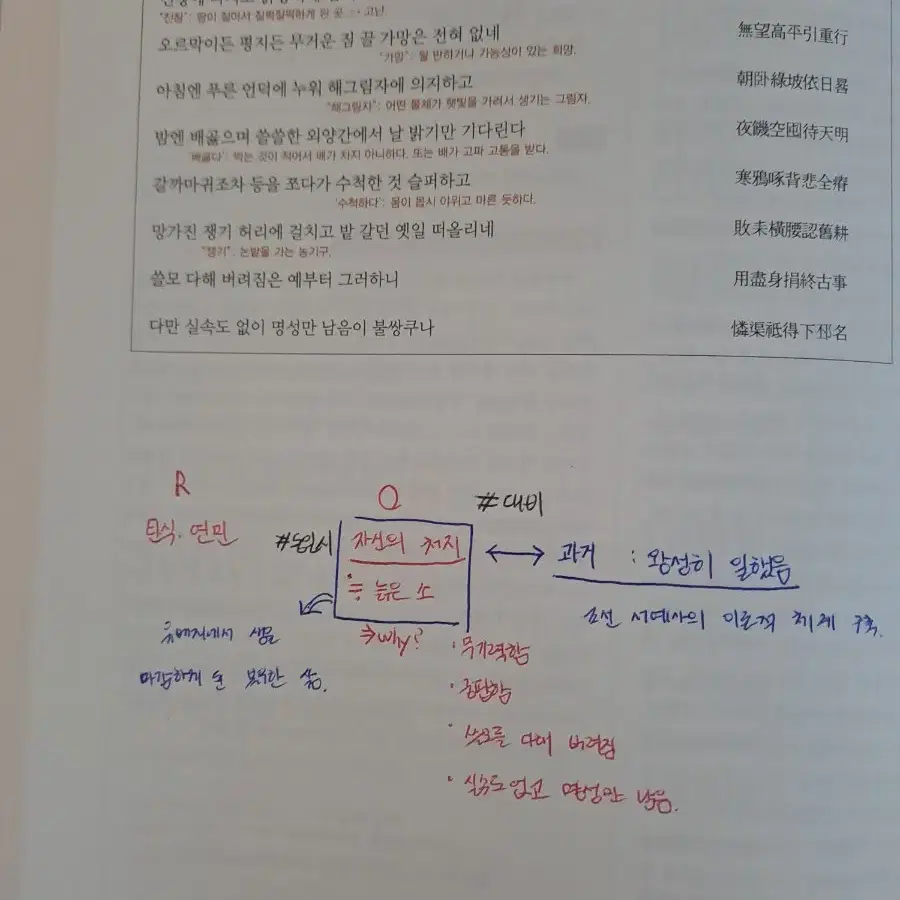 "진창": 땅이 질어서 질퍽질퍽하게 된 곳. → 고난.
오르막이든 평지든 무거운 짐 끌 가망은 전혀 없네
無望高平引重行
"가망": 될 만하거나 가능성이 있는 희망.
아침엔 푸른 언덕에 누워 해그림자에 의지하고
朝卧綠坡依日晷
"해그림자": 어떤 물체가 햇빛을 가려서 생기는 그림자.
밤엔 배곯으며 쓸쓸한 외양간에서 날 밝기만 기다린다
夜饑空囤待天明
"배곯다": 먹는 것이 적어서 배가 차지 아니하다. 또는 배가 고파 고통을 받다.
갈까마귀조차 등을 쪼다가 수척한 것 슬퍼하고
寒鴉啄背悲全瘠
'수척하다': 몸이 몹시 야위고 마른 듯하다.
망가진 쟁기 허리에 걸치고 밭 갈던 옛일 떠올리네
敗耒橫腰認舊耕
"쟁기": 논밭을 가는 농기구.
쓸모 다해 버려짐은 예부터 그러하니
用盡身捐終古事
다만 실속도 없이 명성만 남음이 불쌍쿠나
憐渠祗得下邳名
R
O
#대비
탄식. 연민
#동일시
자신의 처지
≒ 늙은 소
↔
과거 : 왕성히 일했음
조선 서예사의 이론적 체계 구축.
유배지에서 생을
마감하게 된 불우한 삶.
⇒ why?
· 무기력함
· 궁핍함
· 쓸모를 다해 버려짐
· 실속도 없고 명성만 남음.